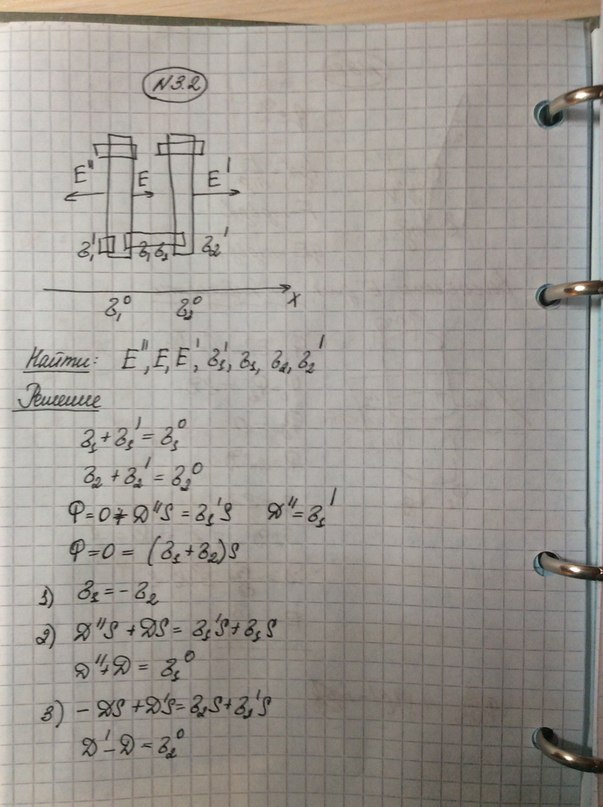 N3.2
E'' E E'
σ₁' σ₁ σ₂ σ₂'
σ₁⁰ σ₂⁰ x
Найти: E'', E, E', σ₁', σ₁, σ₂, σ₂'
Решение
σ₁ + σ₁' = σ₁⁰
σ₂ + σ₂' = σ₂⁰
Φ = 0 + D''S = σ₁'S D'' = σ₁'
Φ = 0 = (σ₁ + σ₂)S
1) σ₁ = -σ₂
2) D''S + DS = σ₁'S + σ₁S
D'' + D = σ₁⁰
3) -DS + D'S = σ₂S + σ₂'S
D' - D = σ₂⁰